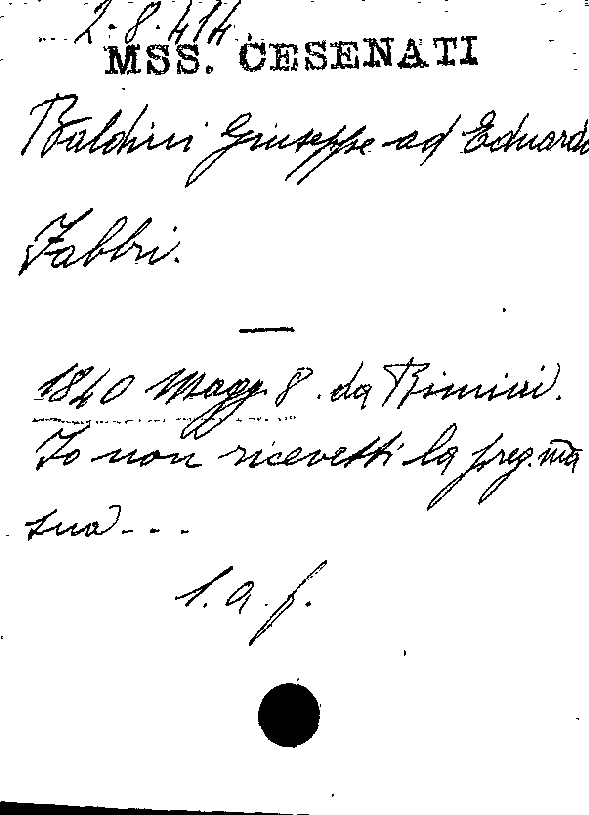 2.8.414
MSS. CESENATI
Baldini Giuseppe ad Eduardo
Fabbri.
1840 Magg. 8. da Rimini.
Io non ricevetti la preg.ma
sua - - -
l. a. f.